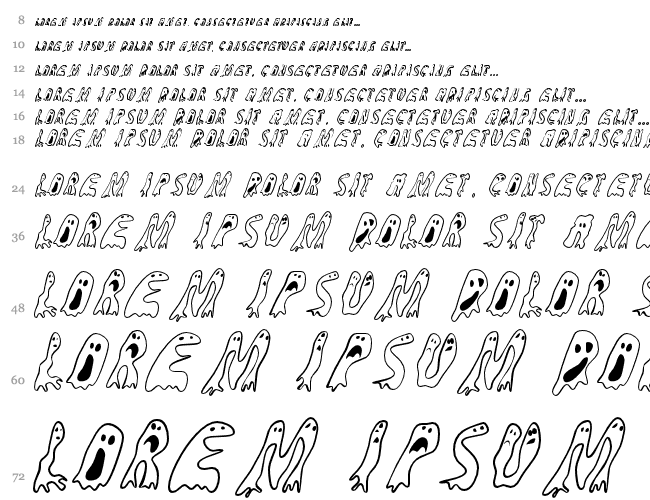 8 LOREM IPSUM DOLOR SIT AMET, CONSECTETUER ADIPISCING ELIT...
10 LOREM IPSUM DOLOR SIT AMET, CONSECTETUER ADIPISCING ELIT...
12 LOREM IPSUM DOLOR SIT AMET, CONSECTETUER ADIPISCING ELIT...
14 LOREM IPSUM DOLOR SIT AMET, CONSECTETUER ADIPISCING ELIT...
16 LOREM IPSUM DOLOR SIT AMET, CONSECTETUER ADIPISCING ELIT...
18 LOREM IPSUM DOLOR SIT AMET, CONSECTETUER ADIPISCIN
24 LOREM IPSUM DOLOR SIT AMET, CONSECTETU
36 LOREM IPSUM DOLOR SIT AM
48 LOREM IPSUM DOLOR S
60 LOREM IPSUM DO
72 LOREM IPSUM